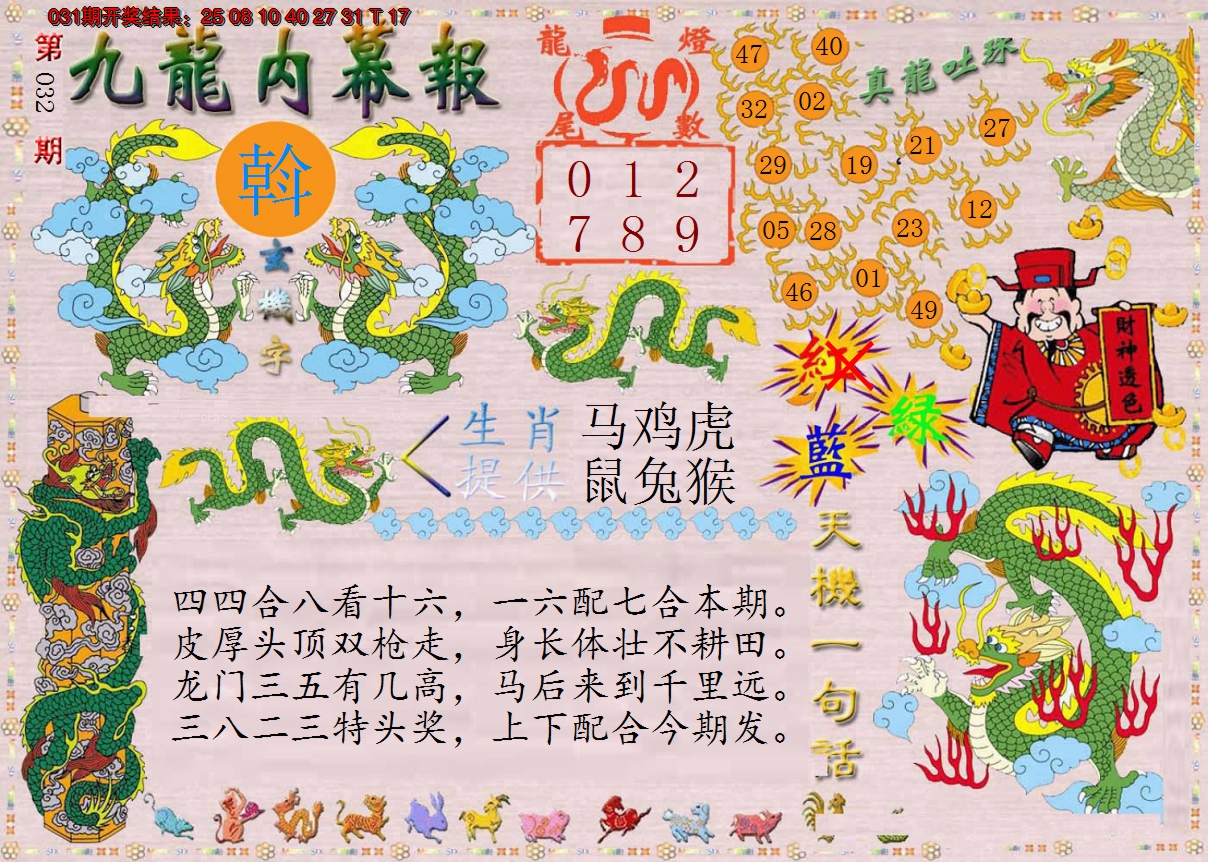 031期开奖结果：25 08 10 40 27 31 T 17
第 032 期
九龍内幕報
龍燈尾數
0 1 2
7 8 9
真龍吐珠
47 40
32 02
27
21
29 19
12
23
05 28
01
46
49
斡
玄機字
財神透色
紅
綠
藍
生肖提供
马鸡虎
鼠兔猴
天機一句话
四四合八看十六，一六配七合本期。
皮厚头顶双枪走，身长体壮不耕田。
龙门三五有几高，马后来到千里远。
三八二三特头奖，上下配合今期发。